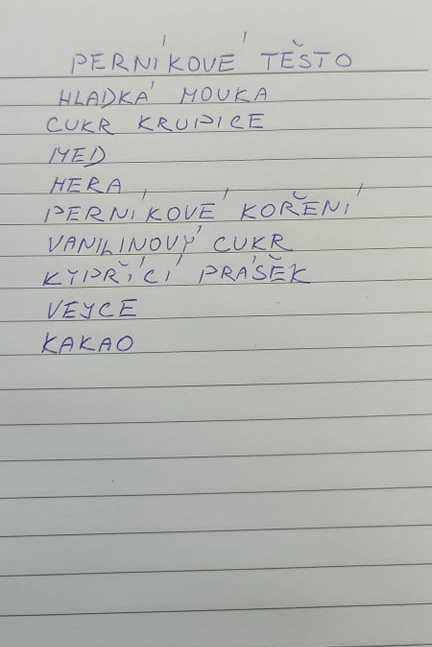 PERNÍKOVÉ TĚSTO
HLADKÁ MOUKA
CUKR KRUPICE
MED
HERA
PERNÍKOVÉ KOŘENÍ
VANILINOVÝ CUKR
KYPŘÍCÍ PRÁŠEK
VEJCE
KAKAO